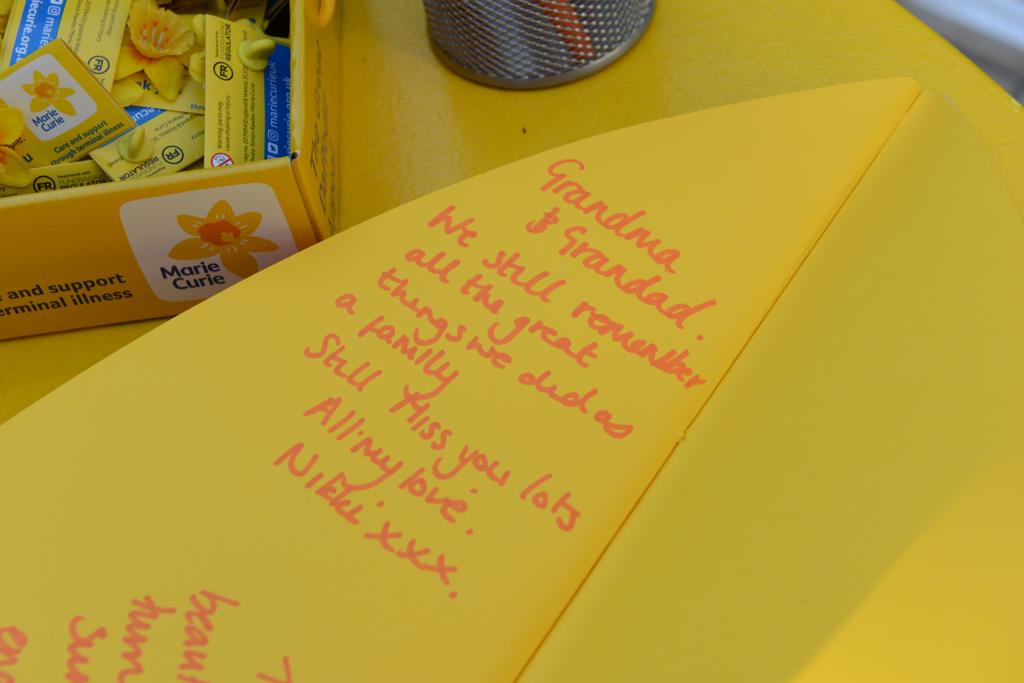 mariecurie.org.u
FR
REGULATOR
mariecurieuk
Marie
Curie
Care and support
through terminal illness
FR
FUNDRAISING
REGULATOR
Marie
Curie
s and support
erminal illness
Grandma
& Grandad.
We still remember
all the great
things we did as
a family
Still Miss you lots
All my love.
Nikki xxx.